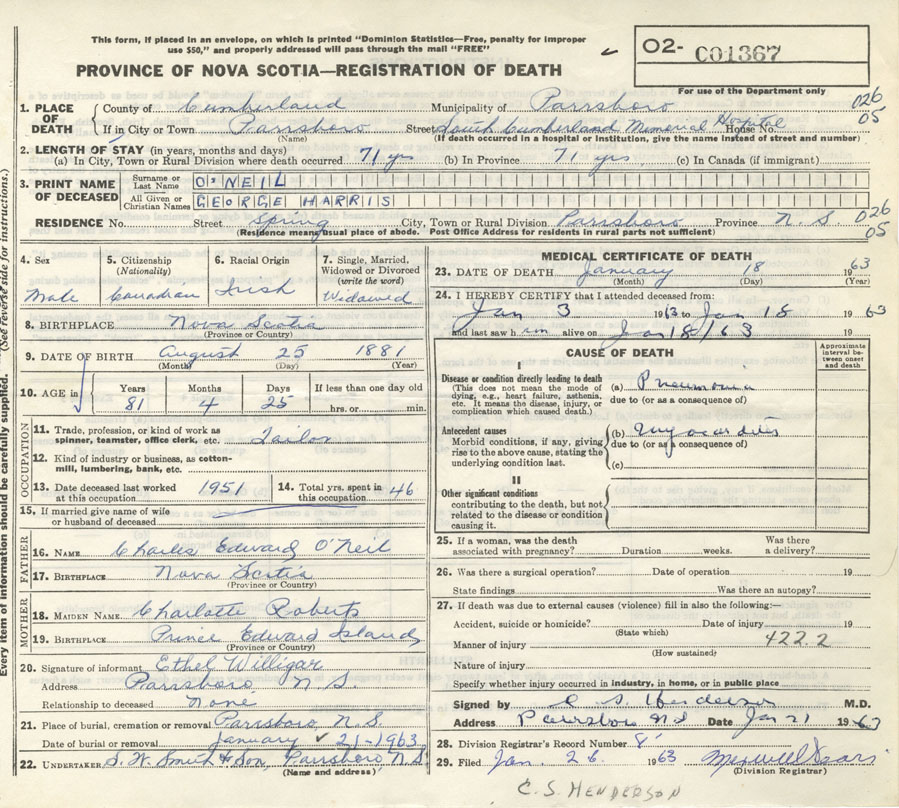 This form, if placed in an envelope, on which is printed "Dominion Statistics—Free, penalty for improper
use $50," and properly addressed will pass through the mail "FREE"
PROVINCE OF NOVA SCOTIA—REGISTRATION OF DEATH
02- C01367
For use of the Department only
1. PLACE OF DEATH
County of Cumberland Municipality of Parrsboro 026
If in City or Town Parrsboro Street South Cumberland Memorial Hospital House No. 05
(Name) (If death occurred in a hospital or institution, give the name instead of street and number)
2. LENGTH OF STAY (in years, months and days)
(a) In City, Town or Rural Division where death occurred 71 yrs (b) In Province 71 yrs (c) In Canada (if immigrant)
3. PRINT NAME OF DECEASED
Surname or Last Name O'NEIL
All Given or Christian Names GEORGE HARRIS
RESIDENCE No. Street Spring City, Town or Rural Division Parrsboro Province N.S 026
(Residence means usual place of abode. Post Office Address for residents in rural parts not sufficient) 05
4. Sex Male
5. Citizenship (Nationality) Canadian
6. Racial Origin Irish
7. Single, Married, Widowed or Divorced (write the word) Widowed
8. BIRTHPLACE Nova Scotia
(Province or Country)
9. DATE OF BIRTH August 25 1881
(Month) (Day) (Year)
10. AGE in Years 81 Months 4 Days 25 If less than one day old hrs. or min.
OCCUPATION
11. Trade, profession, or kind of work as spinner, teamster, office clerk, etc. Tailor
12. Kind of industry or business, as cotton-mill, lumbering, bank, etc.
13. Date deceased last worked at this occupation 1951
14. Total yrs. spent in this occupation 46
15. If married give name of wife or husband of deceased
FATHER
16. NAME Charles Edward O'Neil
17. BIRTHPLACE Nova Scotia
(Province or Country)
MOTHER
18. MAIDEN NAME Charlotte Roberts
19. BIRTHPLACE Prince Edward Island
(Province or Country)
20. Signature of informant Ethel Willigar
Address Parrsboro N.S.
Relationship to deceased None
21. Place of burial, cremation or removal Parrsboro N.S
Date of burial or removal January 21-1963
22. UNDERTAKER S. W. Smith & Son, Parrsboro N.S.
(Name and address)
Every item of information should be carefully supplied. (See reverse side for instructions.)
MEDICAL CERTIFICATE OF DEATH
23. DATE OF DEATH January 18 1963
(Month) (Day) (Year)
24. I HEREBY CERTIFY that I attended deceased from:
Jan 3 1963 to Jan 18 1963
and last saw him alive on Jan 18/63 19
CAUSE OF DEATH
Approximate interval between onset and death
I
Disease or condition directly leading to death
(This does not mean the mode of dying, e.g., heart failure, asthenia, etc. It means the disease, injury, or complication which caused death.)
(a) Pneumonia
due to (or as a consequence of)
Antecedent causes
Morbid conditions, if any, giving rise to the above cause, stating the underlying condition last.
(b) Myocarditis
due to (or as a consequence of)
(c)
II
Other significant conditions
contributing to the death, but not related to the disease or condition causing it.
25. If a woman, was the death associated with pregnancy? Duration weeks. Was there a delivery?
26. Was there a surgical operation? Date of operation 19
State findings Was there an autopsy?
27. If death was due to external causes (violence) fill in also the following:—
Accident, suicide or homicide? Date of injury 19
(State which)
Manner of injury 422.2
(How sustained)
Nature of injury
Specify whether injury occurred in industry, in home, or in public place
Signed by C S Henderson M.D.
Address Parrsboro N.S Date Jan 21 1963
28. Division Registrar's Record Number 8
29. Filed Jan. 26 1963
(Division Registrar)
C.S. HENDERSON